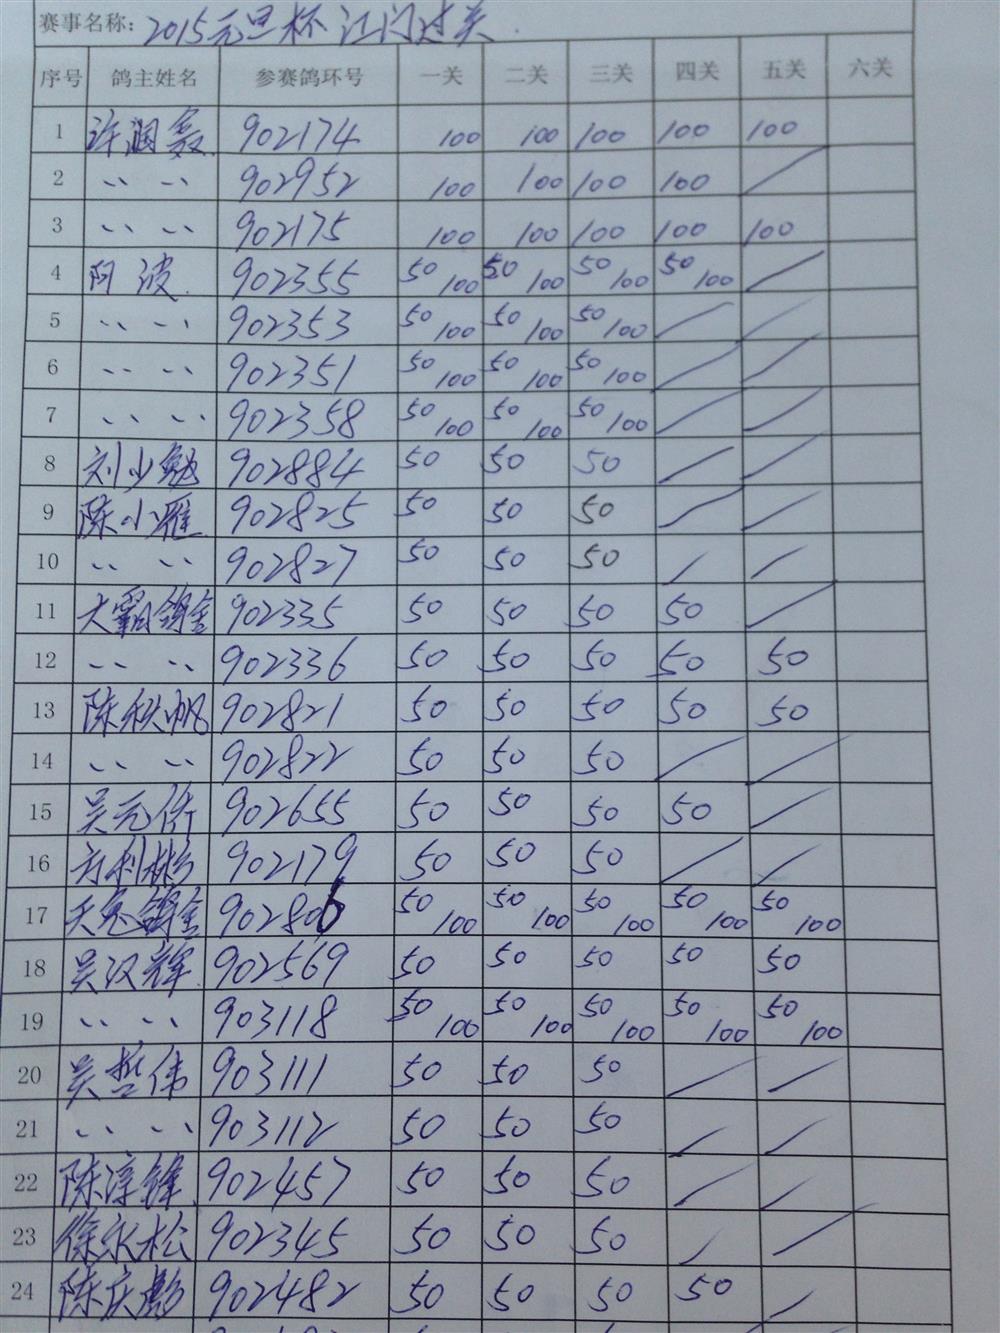 赛事名称: 2015元旦杯 江门过关
序号 鸽主姓名 参赛鸽环号 一关 二关 三关 四关 五关 六关
1 许润鑫 902174 100 100 100 100 100
2 、、 、、 902952 100 100 100 100 /
3 、、 、、 902175 100 100 100 100 100
4 阿波 902355 50/100 50/100 50/100 50/100 /
5 、、 、、 902353 50/100 50/100 50/100 / /
6 、、 、、 902351 50/100 50/100 50/100 / /
7 、、 、、 902358 50/100 50/100 50/100 / /
8 刘少勉 902884 50 50 50 / /
9 陈小雁 902825 50 50 50 / /
10 、、 、、 902827 50 50 50 / /
11 大霸鸽舍 902335 50 50 50 50 /
12 、、 、、 902336 50 50 50 50 50
13 陈秋帆 902821 50 50 50 50 50
14 、、 、、 902822 50 50 50 / /
15 吴元侨 902655 50 50 50 50 /
16 902179 50 50 50 / /
17 鸽舍 902806 50/100 50/100 50/100 50/100 50/100
18 吴汉辉 902569 50 50 50 50 50
19 、、 、、 903118 50/100 50/100 50/100 50/100 50/100
20 吴哲伟 903111 50 50 50 / /
21 、、 、、 903112 50 50 50 / /
22 陈淳锋 902457 50 50 50 / /
23 徐永松 902345 50 50 50 / /
24 陈庆彪 902482 50 50 50 50 /